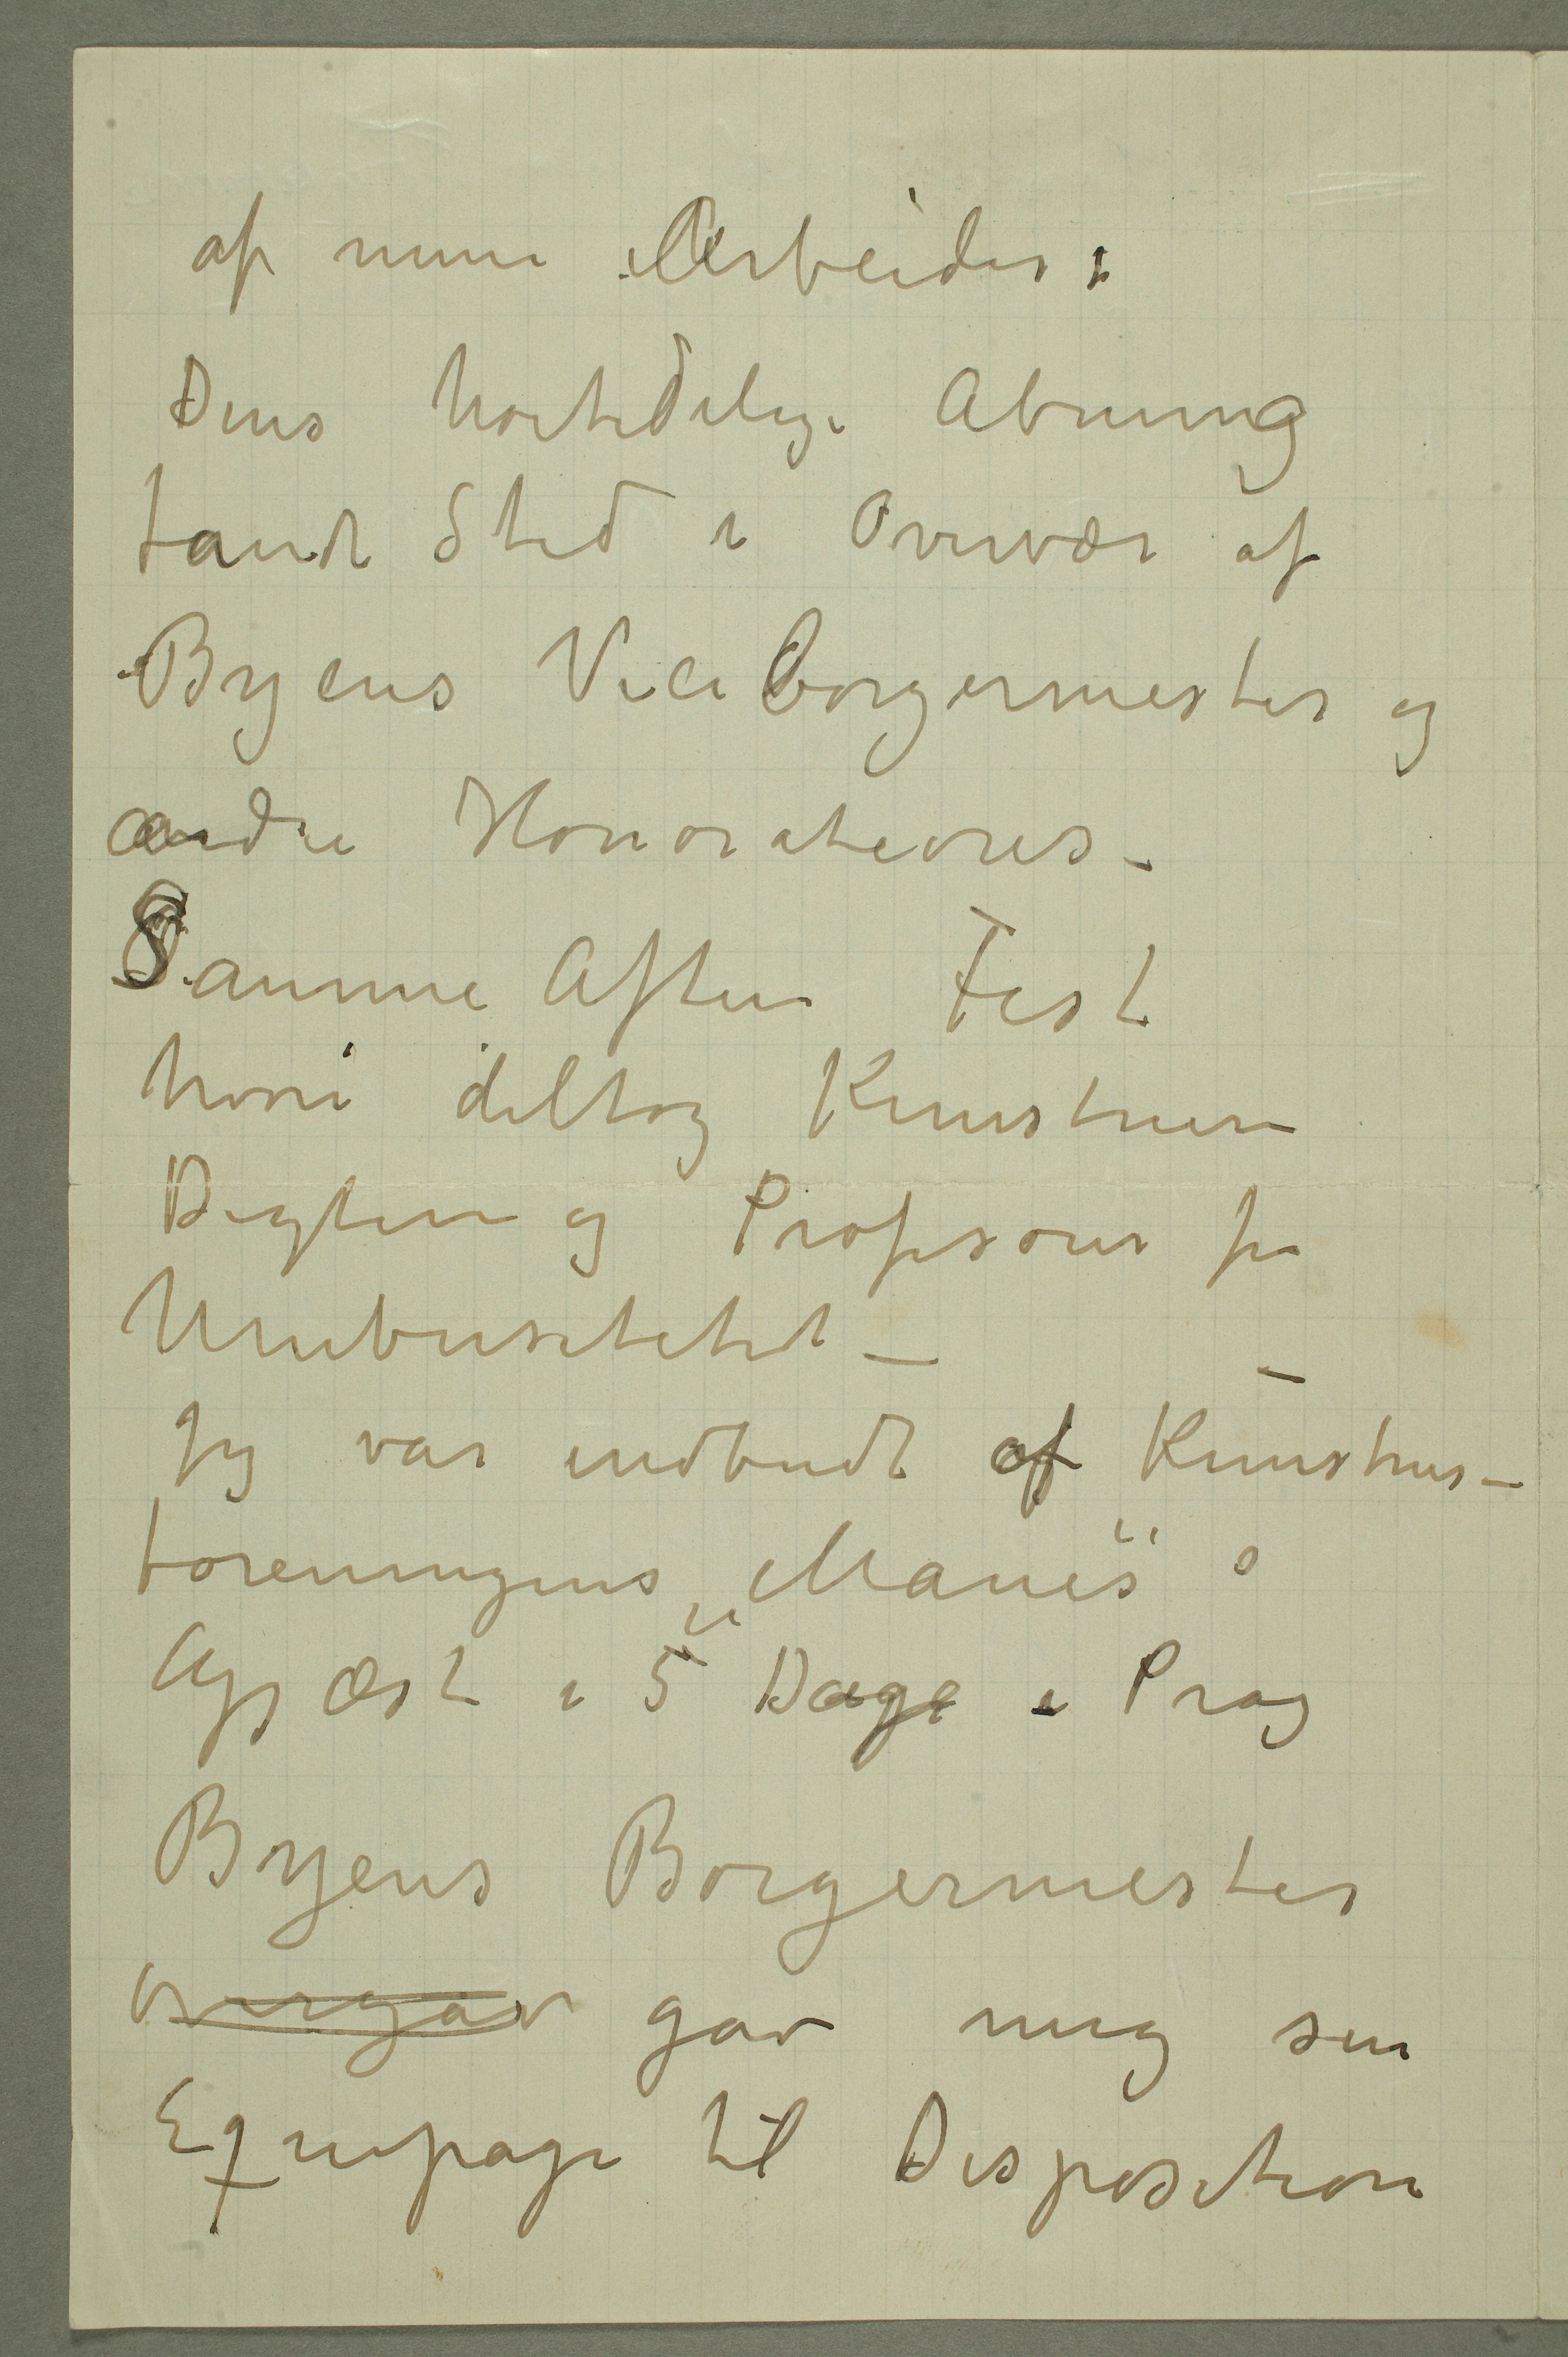 af mine Arbeider:
Dens høitidelige Åbning
fandt Sted i Overvær af
Byens Viceborgermester og
andre Honoratiores –
Samme Aften Fest
hvori deltog Kunstnere
Digtere og Profesorer fra
Universitetet –
Jeg var indbudt af Kunstner-
foreningens „Manes“s
Gjæst i 5 Dage i Prag
Byens Borgermester
overgav gav mig sin
Equipage til Disposition